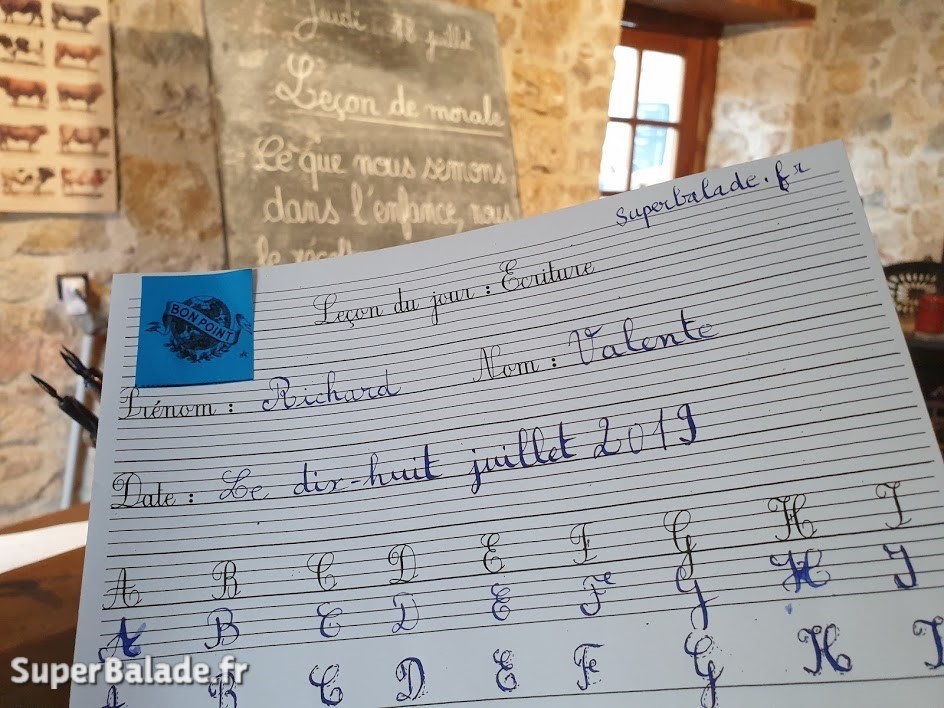 Jeudi 18 juillet
Leçon de morale
Ce que nous semons
dans l'enfance, nous
superbalade.fr
Leçon du jour : Ecriture
BON POINT
Prénom : Richard Nom : Valente
Date : Le dix-huit juillet 2019
A B C D E F G H I
A B C D E F G H I
A B C D E F G H I
SuperBalade.fr